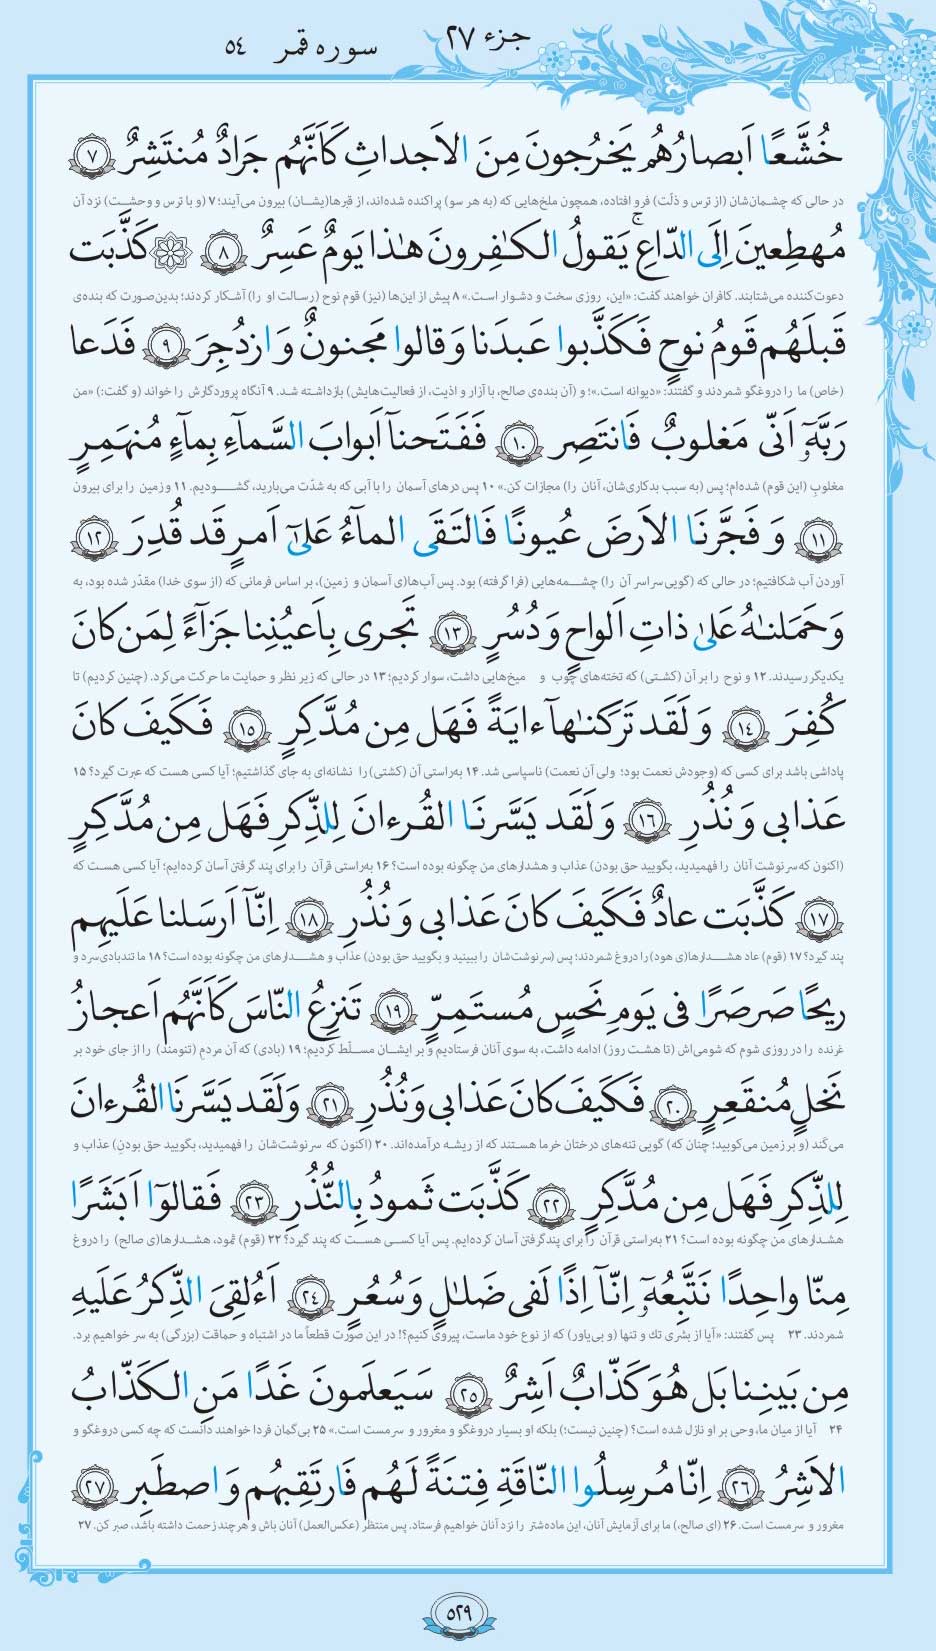 جزء ۲۷ سوره قمر ۵۴
خُشَّعًا اَبصارُهُم يَخرُجونَ مِنَ الاَجداثِ كَاَنَّهُم جَرادٌ مُنتَشِرٌ ۷
در حالی که چشمان‌شان (از ترس و ذلّت) فرو افتاده، همچون ملخ‌هایی که (به هر سو) پراکنده شده‌اند، از قبرها(یشان) بیرون می‌آیند؛ ۷ (و با ترس و وحشت) نزد آن
مُهطِعينَ اِلَى الدّاعِ ۚ يَقولُ الكٰفِرونَ هٰذا يَومٌ عَسِرٌ ۸ ۞ كَذَّبَت
دعوت‌کننده می‌شتابند. کافران خواهند گفت: «این، روزی سخت و دشوار است.» ۸ پیش از این‌ها (نیز) قوم نوح (رسالت او را) آشکار کردند؛ بدین‌صورت که بنده‌ی
قَبلَهُم قَومُ نوحٍ فَكَذَّبوا عَبدَنا وَ قالوا مَجنونٌ وَ ازدُجِرَ ۹ فَدَعا
(خاص) ما را دروغگو شمردند و گفتند: «دیوانه است.»؛ و (آن بنده‌ی صالح، با آزار و اذیت، از فعالیت‌هایش) بازداشته شد. ۹ آنگاه پروردگارش را خواند (و گفت:) «من
رَبَّهٗٓ اَنّى مَغلوبٌ فَانتَصِر ۱۰ فَفَتَحنآ اَبوابَ السَّمآءِ بِمآءٍ مُنهَمِرٍ
مغلوبِ (این قوم) شده‌ام؛ پس (به سبب بدکاری‌شان، آنان را) مجازات کن.» ۱۰ پس درهای آسمان را با آبی که به شدّت می‌بارید، گشودیم. ۱۱ و زمین را برای بیرون
۱۱ وَ فَجَّرنَا الاَرضَ عُيونًا فَالتَقَى المآءُ عَلىٰٓ اَمرٍ قَد قُدِرَ ۱۲
آوردن آب شکافتیم؛ در حالی که (گویی سراسر آن را) چشمه‌هایی (فرا گرفته) بود. پس آب‌ها(ی آسمان و زمین)، بر اساس فرمانی که (از سوی خدا) مقدّر شده بود، به
وَ حَمَلنٰهُ عَلىٰ ذاتِ اَلواحٍ وَ دُسُرٍ ۱۳ تَجرى بِاَعيُنِنا جَزآءً لِمَن كانَ
یکدیگر رسیدند. ۱۲ و نوح را بر آن (کشتی) که تخته‌های چوب و میخ‌هایی داشت، سوار کردیم؛ ۱۳ در حالی که زیر نظر و حمایت ما حرکت می‌کرد. (چنین کردیم) تا
كُفِرَ ۱۴ وَ لَقَد تَرَكنٰهآ ءايَةً فَهَل مِن مُدَّكِرٍ ۱۵ فَكَيفَ كانَ
پاداشی باشد برای کسی که (وجودش نعمت بود؛ ولی آن نعمت) ناسپاسی شد. ۱۴ به‌راستی آن (کشتی) را نشانه‌ای به جای گذاشتیم؛ آیا کسی هست که عبرت گیرد؟ ۱۵
عَذابى وَ نُذُرِ ۱۶ وَ لَقَد يَسَّرنَا القُرءانَ لِلذِّكرِ فَهَل مِن مُدَّكِرٍ
(اکنون که سرنوشت آنان را فهمیدید، بگویید حق بودن) عذاب و هشدارهای من چگونه بوده است؟ ۱۶ به‌راستی قرآن را برای پند گرفتن آسان کرده‌ایم؛ آیا کسی هست که
۱۷ كَذَّبَت عادٌ فَكَيفَ كانَ عَذابى وَ نُذُرِ ۱۸ اِنّآ اَرسَلنا عَلَيهِم
پند گیرد؟ ۱۷ (قوم) عاد هشدارها(ی هود) را دروغ شمردند؛ پس (سرنوشت‌شان را ببینید و بگویید حق بودن) عذاب و هشدارهای من چگونه بوده است؟ ۱۸ ما تندبادی سرد و
ريحًا صَرصَرًا فى يَومِ نَحسٍ مُستَمِرٍّ ۱۹ تَنزِعُ النّاسَ كَاَنَّهُم اَعجازُ
غرنده را در روزی شوم که شومی‌اش (تا هشت روز) ادامه داشت، به سوی آنان فرستادیم و بر ایشان مسلّط کردیم؛ ۱۹ (بادی) که آن مردم (تنومند) را از جای خود بر
نَخلٍ مُنقَعِرٍ ۲۰ فَكَيفَ كانَ عَذابى وَ نُذُرِ ۲۱ وَ لَقَد يَسَّرنَا القُرءانَ
می‌کَند (و بر زمین می‌کوبید؛ چنان که) گویی تنه‌های درختان خرما هستند که از ریشه درآمده‌اند. ۲۰ (اکنون که سرنوشت‌شان را فهمیدید، بگویید حق بودن) عذاب و
لِلذِّكرِ فَهَل مِن مُدَّكِرٍ ۲۲ كَذَّبَت ثَمودُ بِالنُّذُرِ ۲۳ فَقالوٓا اَبَشَرًا
هشدارهای من چگونه بوده است؟ ۲۱ به‌راستی قرآن را برای پند گرفتن آسان کرده‌ایم. پس آیا کسی هست که پند گیرد؟ ۲۲ (قوم) ثمود، هشدارها(ی صالح) را دروغ
مِنّا واحِدًا نَتَّبِعُهٗٓ اِنّآ اِذًا لَفى ضَلٰلٍ وَ سُعُرٍ ۲۴ اَءُلقِىَ الذِّكرُ عَلَيهِ
شمردند. ۲۳ پس گفتند: «آیا از بشری تك و تنها (و بی‌یاور) که از نوع خود ماست، پیروی کنیم؟! در این صورت قطعاً ما در اشتباه و حماقت (بزرگی) به سر خواهیم برد.
مِن بَينِنا بَل هُوَ كَذّابٌ اَشِرٌ ۲۵ سَيَعلَمونَ غَدًا مَنِ الكَذّابُ
۲۴ آیا از میان ما، وحی بر او نازل شده است؟ (چنین نیست؛) بلکه او بسیار دروغگو و مغرور و سرمست است.» ۲۵ بی‌گمان فردا خواهند دانست که چه کسی دروغگو و
الاَشِرُ ۲۶ اِنّا مُرسِلُوا النّاقَةِ فِتنَةً لَهُم فَارتَقِبهُم وَ اصطَبِر ۲۷
مغرور و سرمست است. ۲۶ (ای صالح،) ما برای آزمایش آنان، این ماده‌شتر را نزد آنان خواهیم فرستاد. پس منتظر (عکس‌العمل) آنان باش و هر چند زحمت داشته باشد، صبر کن. ۲۷
۵۲۹